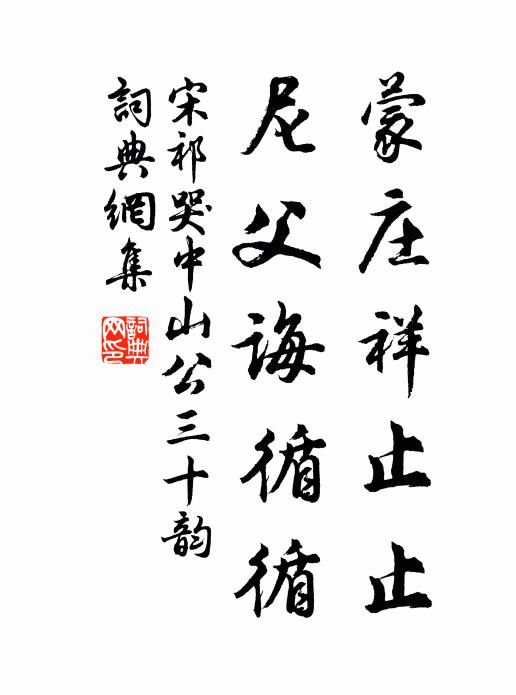 蒙庄祥止止
尼父诲循循
宋祁哭中山公三十韵
詞典網集
詞典网印